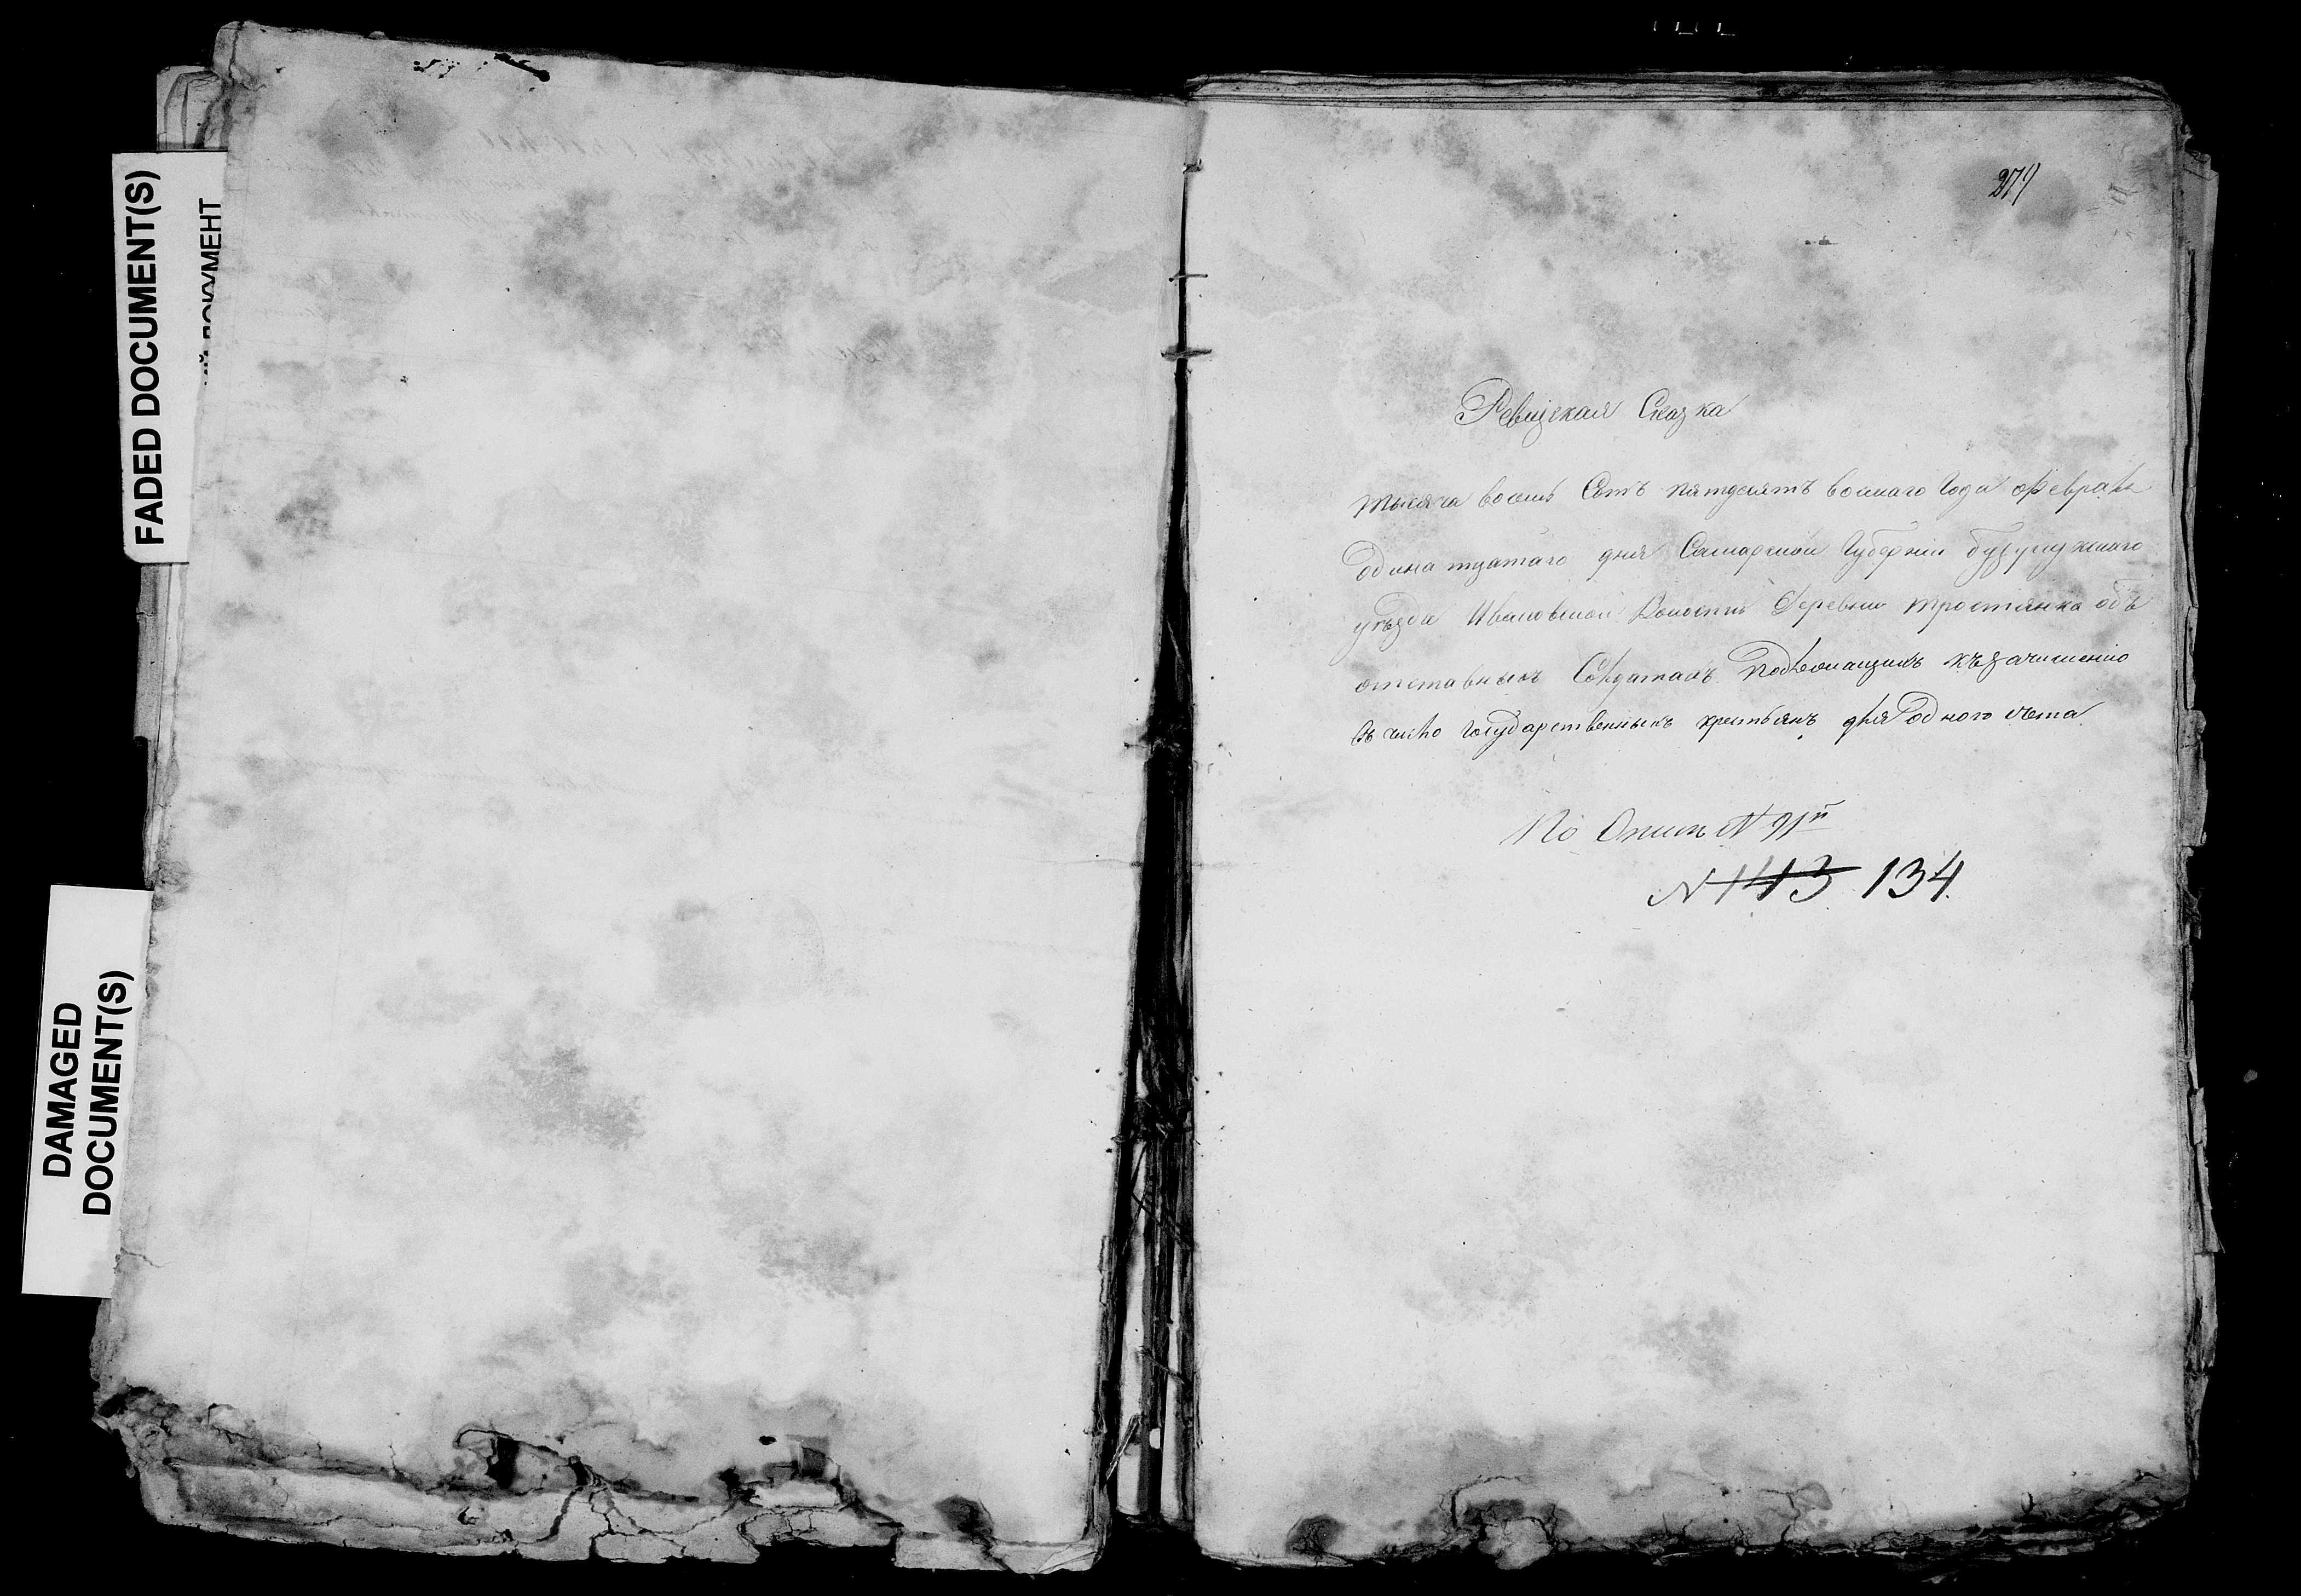 FADED DOCUMENT(S)
ДОКУМЕНТ
DAMAGED
DOCUMENT(S)
279
Ревизская Сказка
тысяча восемь Сотъ пятдесятъ восмаго Года февраля
одинатцатаго дня Самарской Губернии бузулузкаго
уѣзда Ивановской Волости Деревни тростянка объ
отставныхъ Солдатахъ подлежащихъ къ зачислению
въ число Государственныхъ крестьянъ для одного счета
По Описи № 91й
№ 143 134.